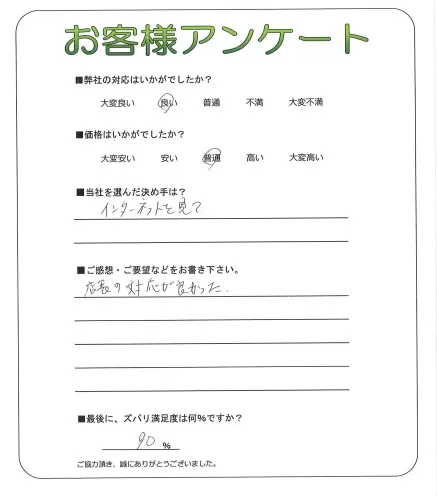 お客様アンケート
■弊社の対応はいかがでしたか?
大変良い 良い 普通 不満 大変不満
■価格はいかがでしたか?
大変安い 安い 普通 高い 大変高い
■当社を選んだ決め手は?
インターネットを見て
■ご感想・ご要望などをお書き下さい。
店長の対応が良かった.
■最後に、ズバリ満足度は何%ですか?
90 %
ご協力頂き、誠にありがとうございました。